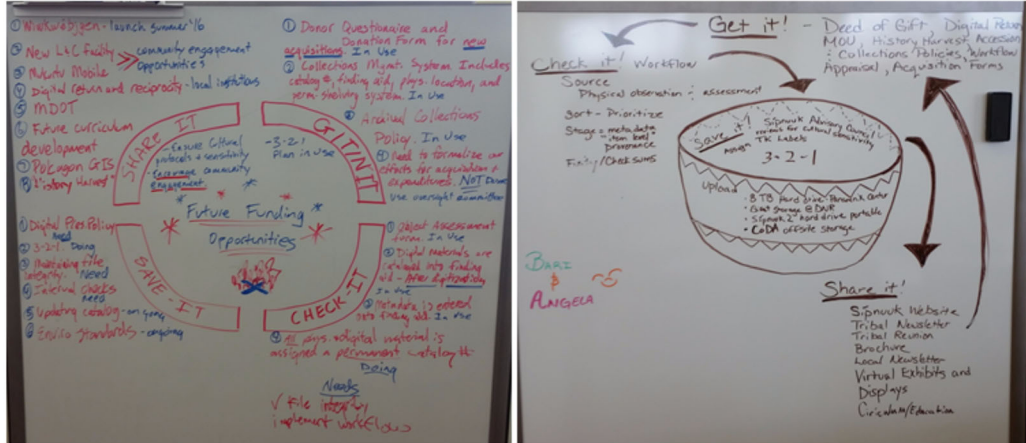 launch summer '16
New L&C facility
community engagement
opportunities
Mukutu Mobile
Digital return and reciprocity - local institutions
MDOT
Future curriculum
development
Pokagon GIS
"History Harvest"
① Donor Questionnaire and
Donation Form for new
acquisitions. In Use
② Collections Mgmt. System Includes
catalog #, finding aid, phys. location, and
perm. shelving system. In Use
Archival Collections
Policy. In Use
need to formalize our
efforts for acquisition &
NOT Done
use oversight committee
SHARE IT
GITINIT
SAVE-IT
CHECK IT
- Ensure Cultural
protocols & sensitivity
- Encourage community
engagement
- 3-2-1
Plan in use
Future Funding
Opportunities
① Digital Pres Policy
Need
② 3-2-1 Doing
③ Maintaining file
integrity. Need
④ Interval checks
need
⑤ Updating catalog - on going
⑥ Enviro Standards - ongoing
① Object Assessment
form. In Use
② Digital materials are
cataloged into finding
aid - After digitization
In Use
③ Metadata is entered
into finding aid. In Use
④ All phys. & digital material is
assigned a permanent catalog #.
Doing
Needs
√ File integrity
implement workflows
Get it! - Deed of Gift, Digital
MOU, History Harvest, Accession
Collections Policies, Workflow
Appraisal, Acqusition Forms
Check it! Workflow
Source
Physical observation : assessment
sort - Prioritize
Stage = metadata
item level
provenance
Fixity/Check sums
Save it!
Sipnuuk Advisory Council
reviews for cultural sensitivity
TK Labels
3-2-1
Upload
8 TB Hard drive - Panamnik Center
storage @ DNR
Sipnuuk 2nd hard drive portable
CoDA offsite storage
Bari
&
Angela
Share it!
Sipnuuk Website
Tribal Newsletter
Tribal Reunion
Brochure
Local Newsletter
Virtual Exhibits and
Displays
Ciriculum/Education